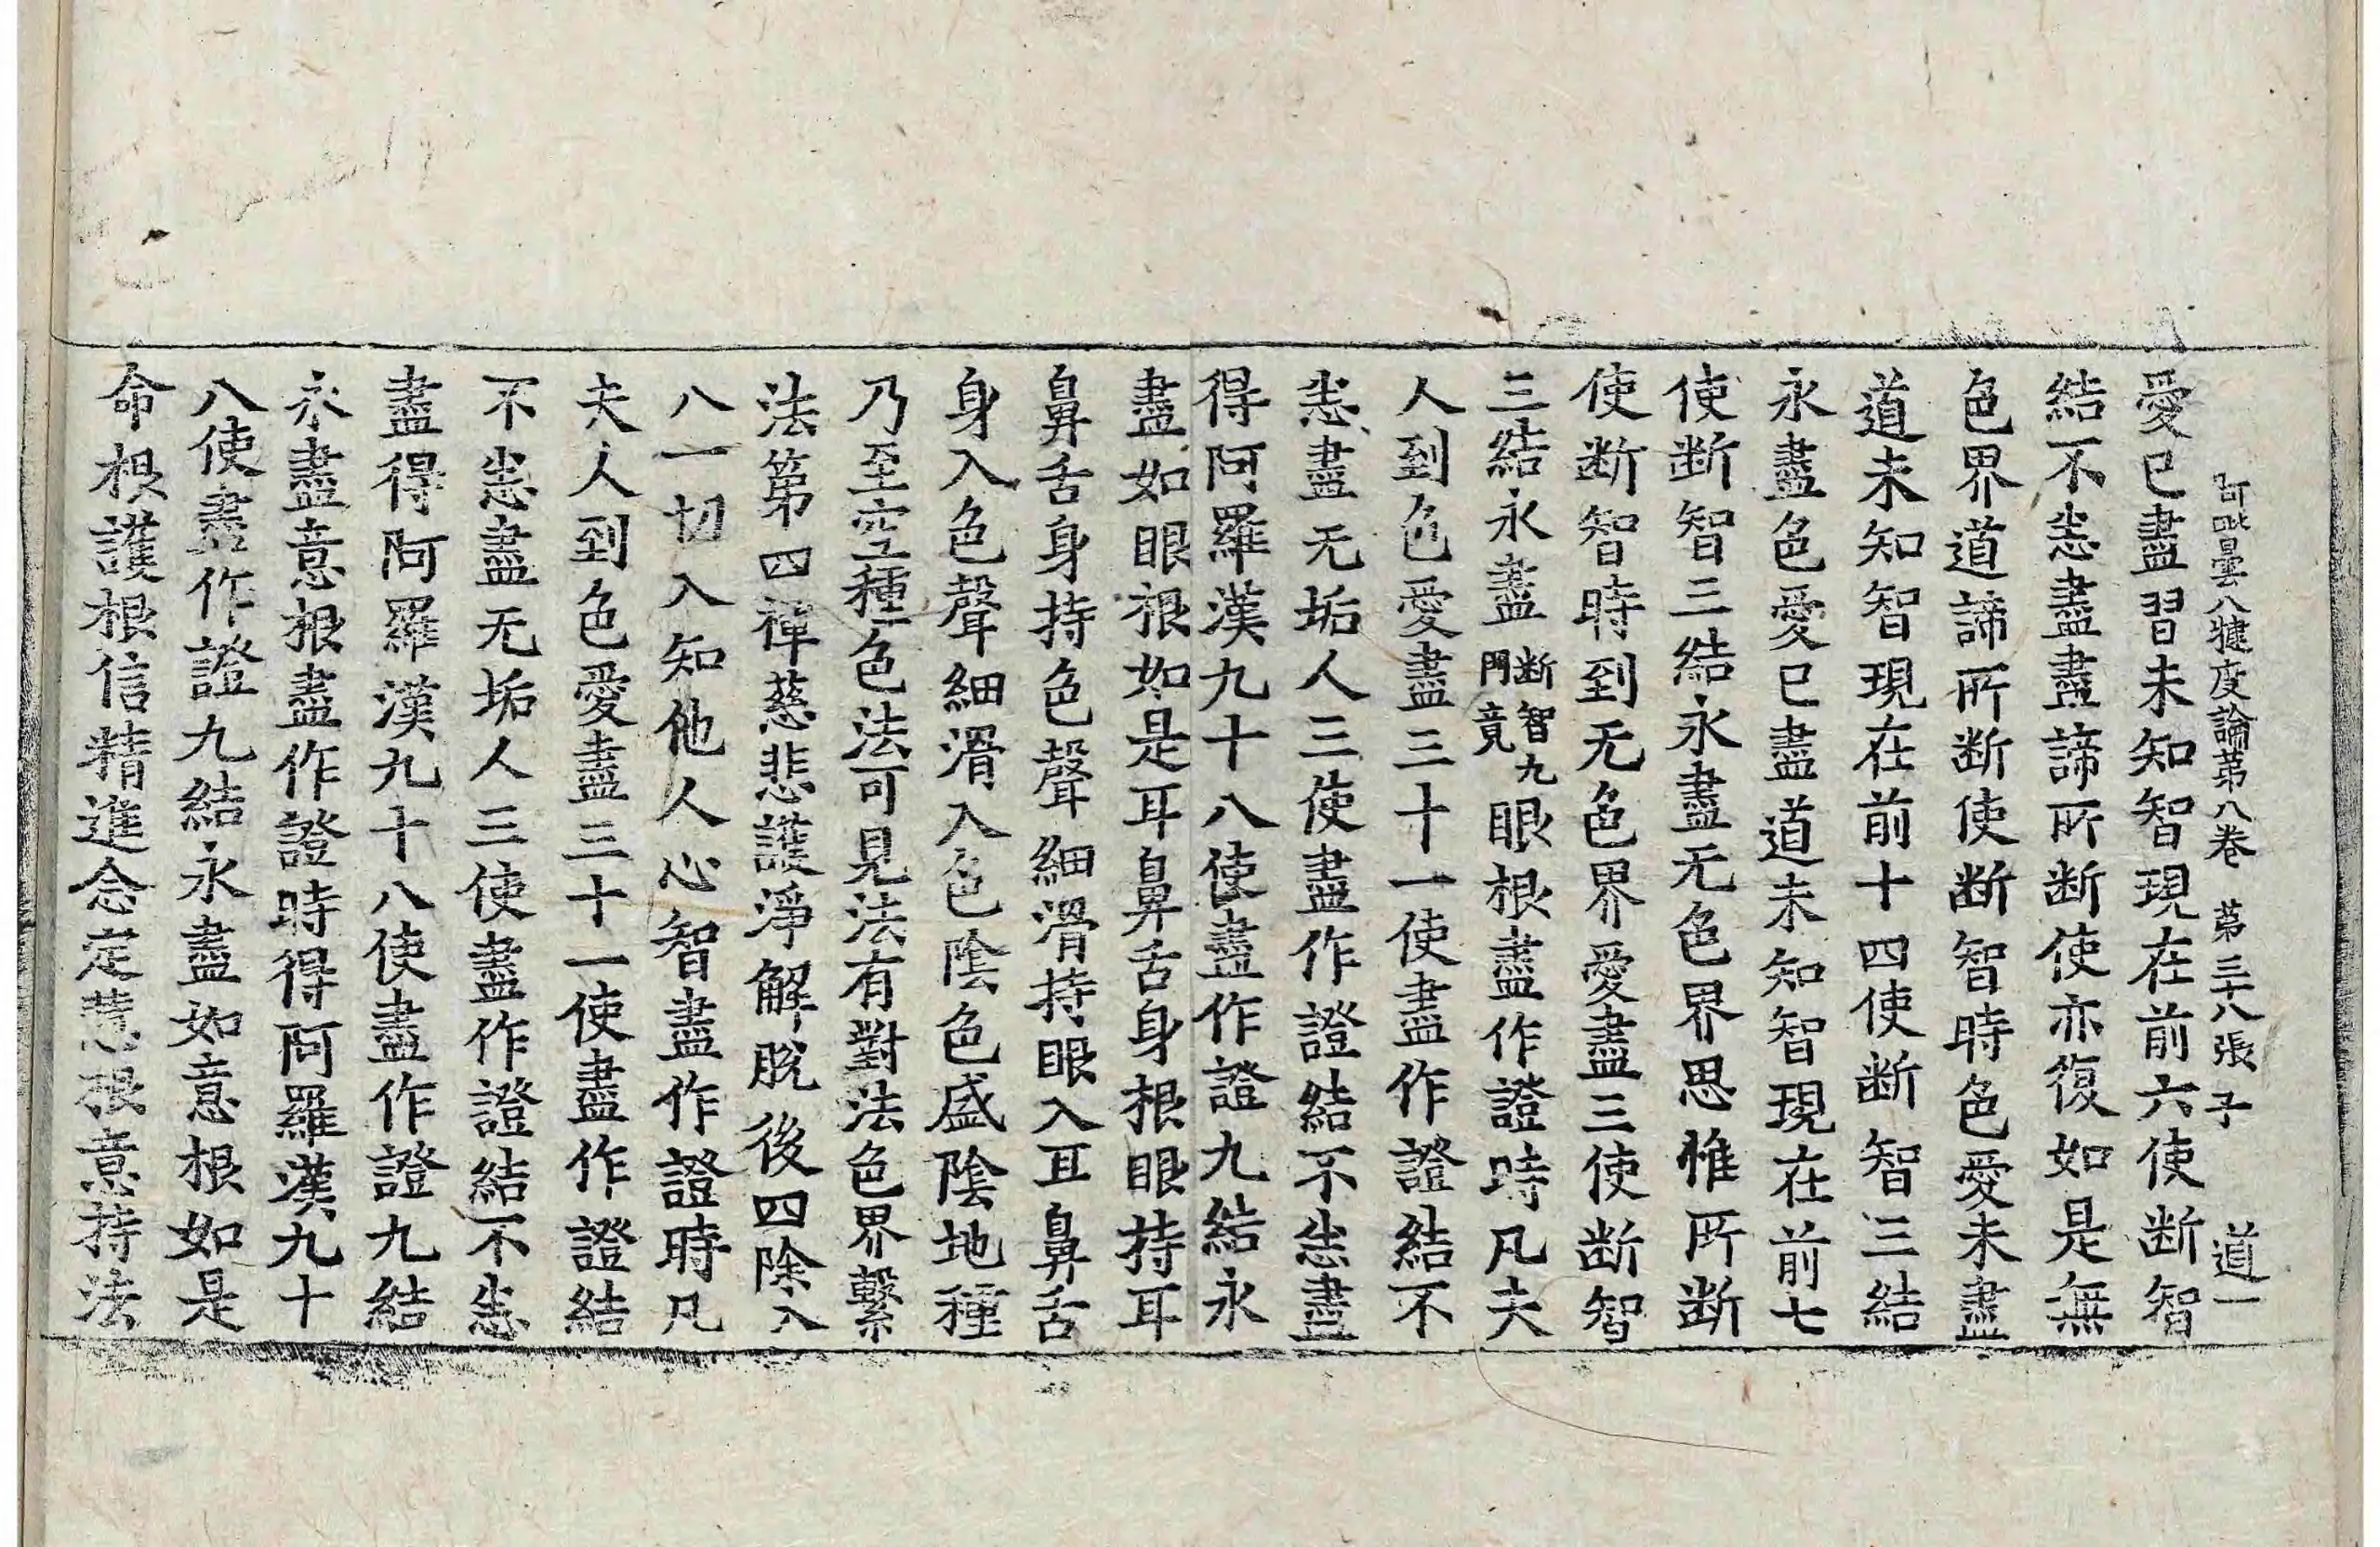 阿毗曇八犍度論第八卷 第三十八張 子 道一
愛已盡習未知智現在前六使斷智
結不恙盡盡諦所斷使亦復如是無
色界道諦所斷使斷智時色愛未盡
道未知智現在前十四使斷智三結
永盡色愛已盡道未知智現在前七
使斷智三結永盡无色界思惟所斷
使斷智時到无色界愛盡三使斷智
三結永盡斷智九門竟眼根盡作證時凡夫
人到色愛盡三十一使盡作證結不
恙盡无垢人三使盡作證結不恙盡
得阿羅漢九十八使盡作證九結永
盡如眼根如是耳鼻舌身根眼持耳
鼻舌身持色聲細滑持眼入耳鼻舌
身入色聲細滑入色陰色盛陰地種
乃至空種色法可見法有對法色界繫
法第四禪慈悲護淨解脫後四除入
八一切入知他人心智盡作證時凡
夫人到色愛盡三十一使盡作證結
不恙盡无垢人三使盡作證結不恙
盡得阿羅漢九十八使盡作證九結
永盡意根盡作證時得阿羅漢九十
八使盡作證九結永盡如意根如是
命根護根信精進念定慧根意持法